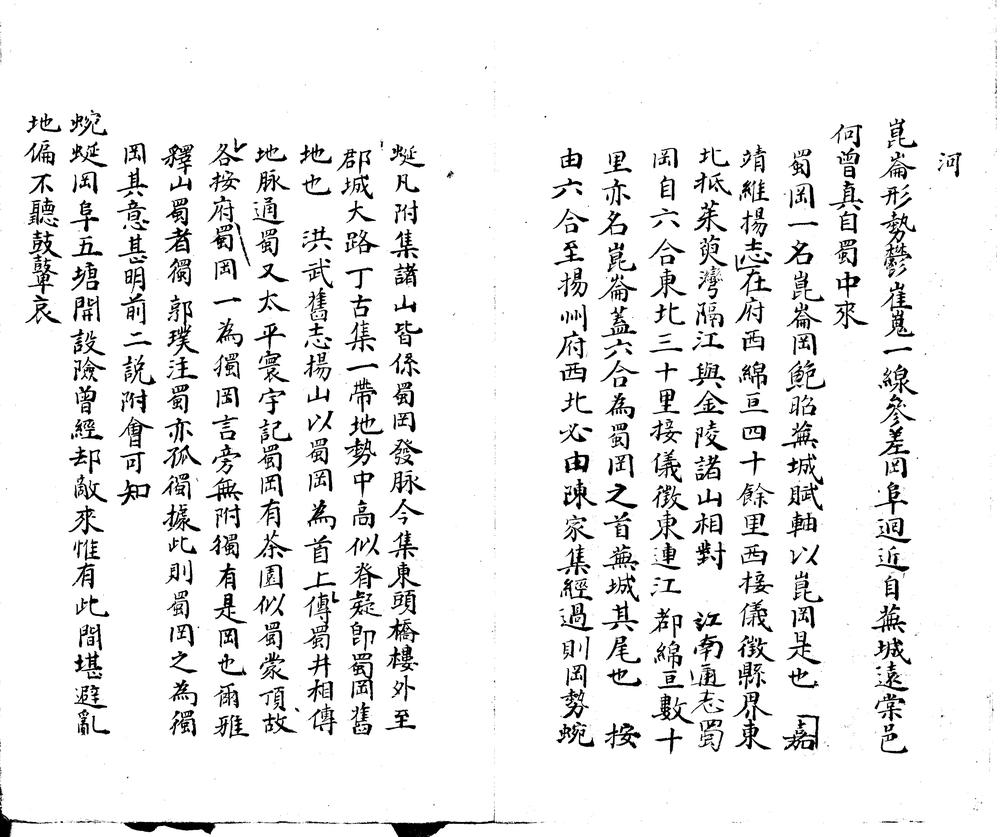 河
崑崙形勢鬱崔嵬一線參差岡阜迴近自蕪城遠棠邑
何曾真自蜀中來
蜀岡一名崑崙岡鮑昭蕪城賦軸以崑岡是也　嘉
靖維揚志在府西綿亘四十餘里西接儀徵縣界東
北抵茱萸灣隔江與金陵諸山相對　江南通志蜀
岡自六合東北三十里接儀徵東連江都綿亘數十
里亦名崑崙蓋六合為蜀岡之首蕪城其尾也　按
由六合至揚州府西北必由陳家集經過則岡勢蜿
蜒凡附集諸山皆係蜀岡發脉今集東頭橋樓外至
郡城大路丁古集一帶地勢中高似脊疑卽蜀岡舊
地也　洪武舊志揚山以蜀岡為首上傳蜀井相傳
地脉通蜀又太平寰宇記蜀岡有茶園似蜀蒙頂故
各按府蜀岡一為獨岡言旁無附獨有是岡也爾雅
釋山蜀者獨郭璞注蜀亦孤獨據此則蜀岡之為獨
岡其意甚明前二説附會可知
蜿蜒岡阜五塘開設險曾經却敵來惟有此間堪避亂
地偏不聽鼓鼙哀